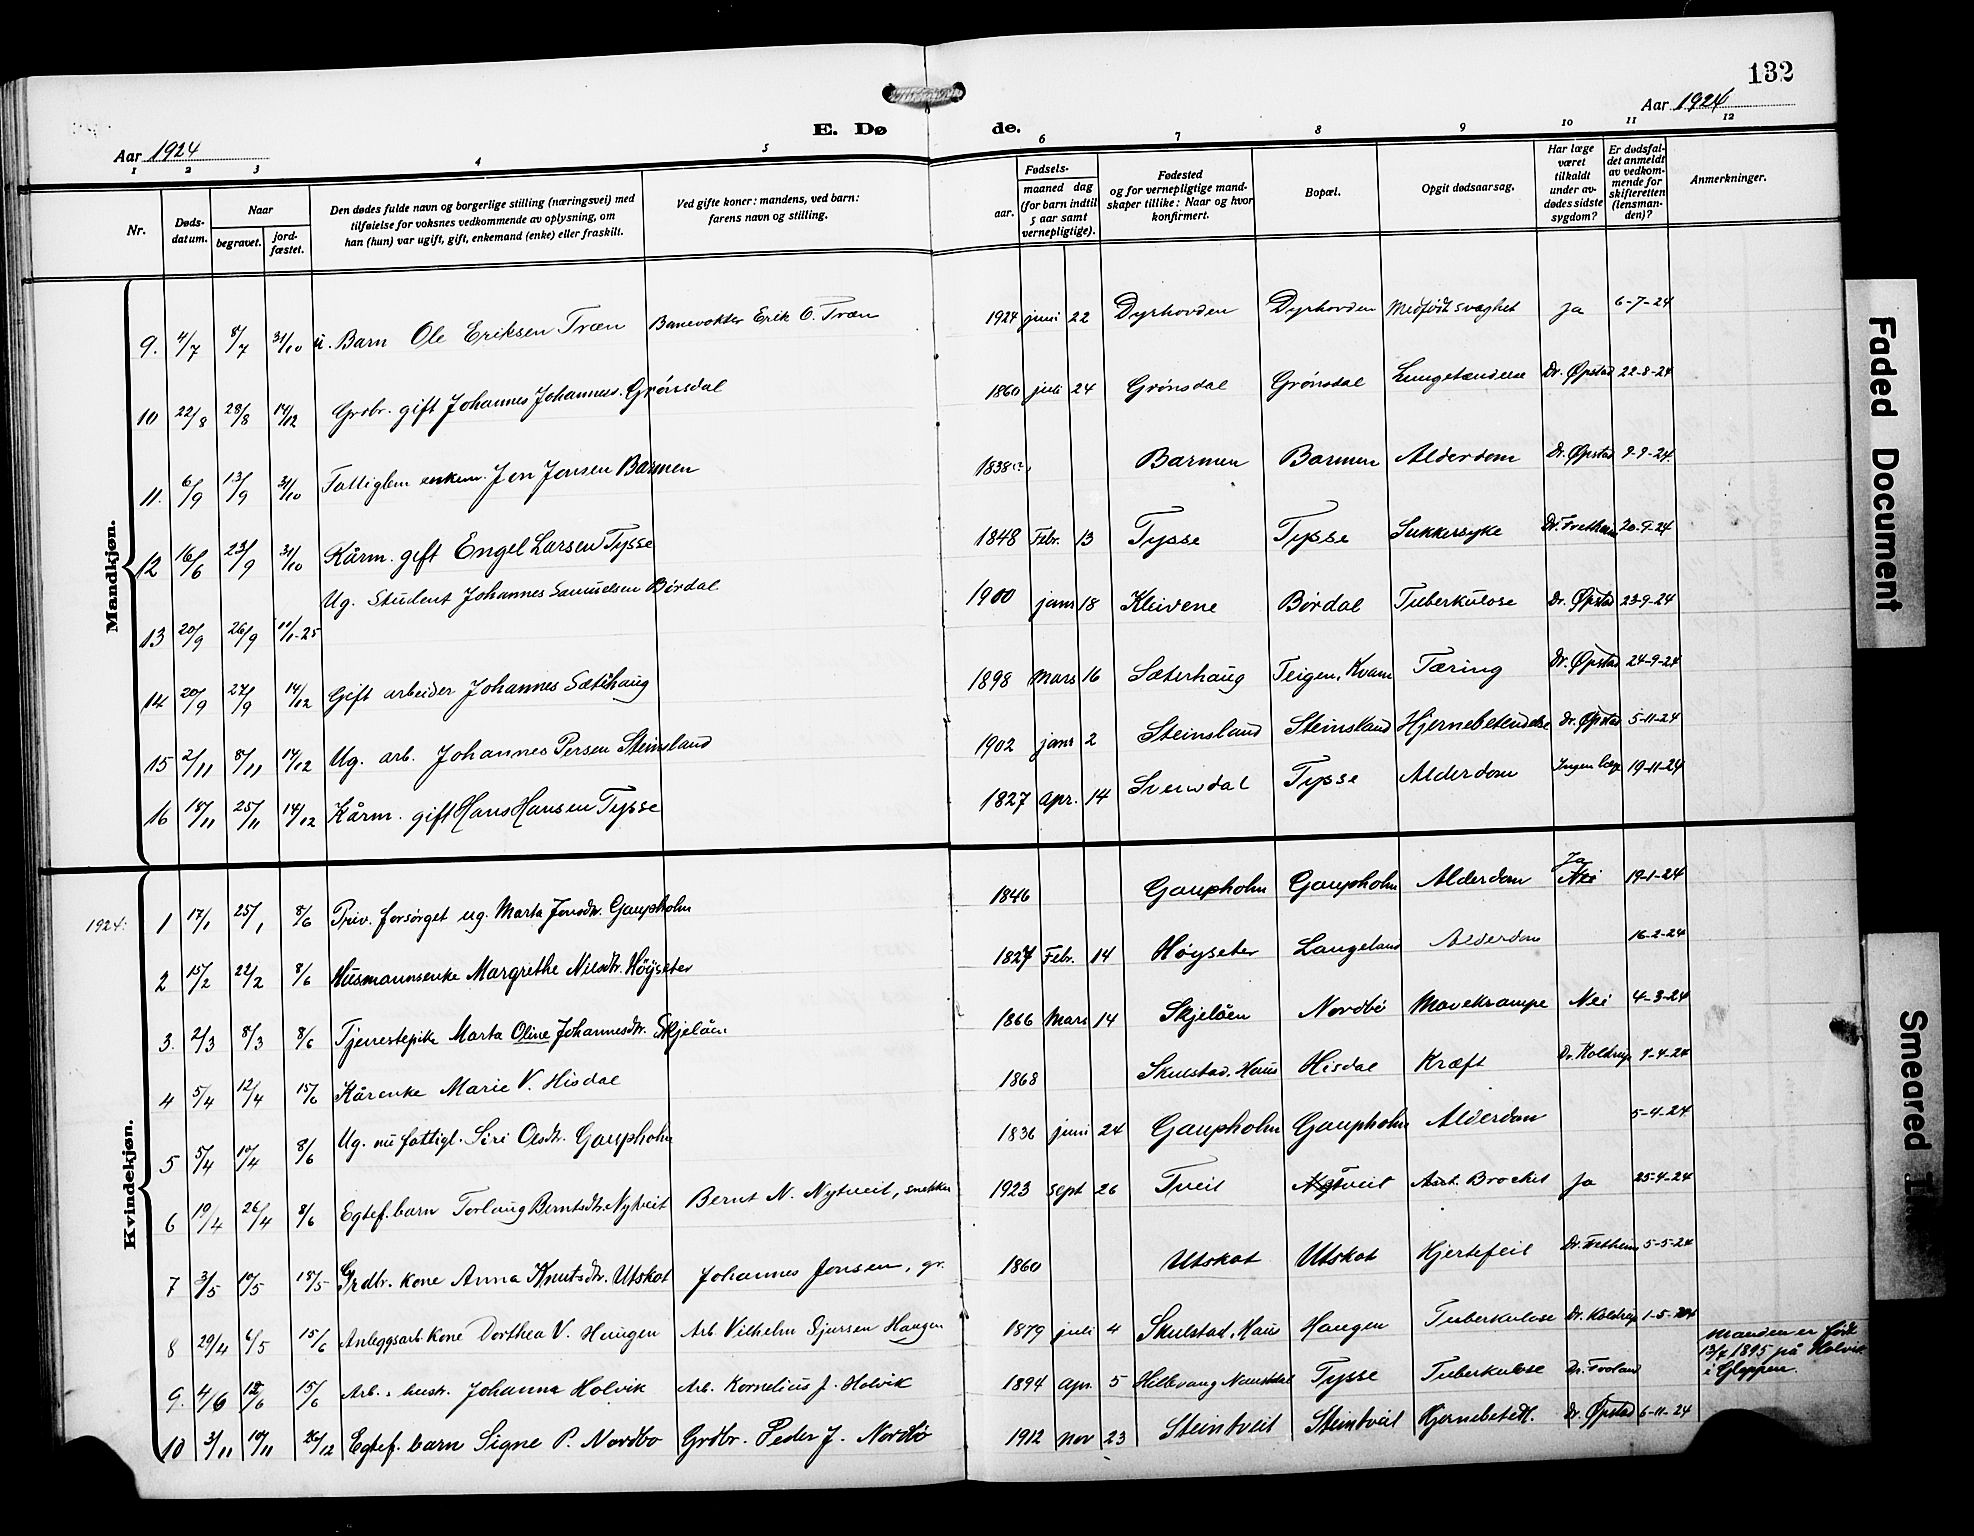 132
Aar 1924
Aar 1924
E. Dø de.
1 2 3 4 5 6 7 8 9 10 11 12
Nr.
Døds-
datum.
Naar
begravet.
jord-
fæstet.
Den dødes fulde navn og borgerlige stilling (næringsvei) med
tilføielse for voksnes vedkommende av oplysning, om
han (hun) var ugift, gift, enkemand (enke) eller fraskilt.
Ved gifte koner: mandens, ved barn:
farens navn og stilling.
Fødsels-
aar.
maaned dag
(for barn indtil
5 aar samt
vernepligtige).
Fødested
og for vernepligtige mand-
skaper tillike: Naar og hvor
konfirmert.
Bopæl.
Opgit dødsaarsag.
Har læge
været
tilkaldt
under av-
dødes sidste
sygdom?
Er dødsfal-
det anmeldt
av vedkom-
mende for
skifteretten
(lensman-
den)?
Anmerkninger.
Mandkjøn.
9. 4/7 8/7 31/10 u. Barn Ole Eriksen Træn Banevokter Erik O. Træn 1924 juni 22 Dyrhovden Dyrhovden Medfødt svaghet ja 6-7-24
10 22/8 28/8 14/12 Grdbr. gift Johannes Johanness. Grönsdal 1860 juli 24 Grönsdal Grönsdal Lungetændelse Dr. Øpstad 22-8-24
11. 6/9 13/9 31/10 Fattiglem enkem. Jon Jonsen Barmen 1838 Barmen Barmen Alderdom Dr. Øpstad 9-9-24.
12 16/6 23/9 31/10 Kårm. gift Engel Larsen Tysse 1848 Febr. 13 Tysse Tysse Sukkersyke Dr. Fretheim 20-9-24
13 20/9 26/9 11/1-25 Ug. Student Johannes Samuelsen Børdal 1900 janr 18 Kleivene Børdal Tuberkulose Dr. Øpstad 23-9-24
14 20/9 27/9 14/12 Gift arbeider Johannes Sæterhaug 1898 Mars 16 Sæterhaug Teigen, Kvam Tæring Dr. Øpstad 24-9-24
15 2/11 8/11 14/12 Ug. arb. Johannes Persen Steinsland 1902 janr 2 Steinsland Steinsland Hjernebetendelse Dr. Øpstad 5-11-24
16 18/11 25/11 14/12 Kårm. gift Hans Hansen Tysse 1827 Apr. 14 Svensdal Tysse Alderdom Ingen læge 19-11-24
Kvindekjøn.
1924: 1 17/1 25/1 8/6 Priv. forsørget ug. Marta Jonsdtr. Gaupholm 1846 Gaupholm Gaupholm Alderdom Ja Nei 19-1-24
2 15/2 22/2 8/6 Husmannsenke Margrethe Nilsdtr. Höyseter 1827 Febr. 14 Höyseter Langeland Alderdom 16-2-24
3. 2/3 8/3 8/6 Tjenestepike Marta Oline Johannesdtr. Skjelåen 1866 Mars 14 Skjelåen Nordbö Mavekrampe Nei 4-3-24
4 5/4 12/4 15/6 Kårenke Marie V. Hisdal 1868 Skulstad, Haus Hisdal Kræft Dr. Koldrup 9-4-24
5 5/4 10/4 8/6 Ug. nu fattigl. Siri Olsdtr. Gaupholm 1836 juni 24 Gaupholm Gaupholm Alderdom 5-4-24
6 19/4 26/4 8/6 Egtef. barn Torlaug Berntsdtr. Nytveit Bernt N. Nytveit, snekker 1923 Sept 26 Tveit Nytveit Akut. Brockit ja 25-4-24
7 3/5 10/5 18/5 Grdbr. kone Anna Knutsdtr. Utskot Johannes Jonsen, gr. 1860 Utskot Utskot Hjertefeil Dr. Fretheim 5-5-24
8 29/4 6/5 15/6 Anleggsarb. kone Dorthea V. Haugen Arb. Vilhelm Sjursen Haugen 1879 juli 4 Skulstad, Haus Haugen Tuberkulose Dr. Koldrup 1-5-24
9. 4/6 12/6 15/6 Arb. hustr. Johanna Holvik Arb. Kornelius J. Holvik 1894 Apr. 5 Hellevang Naustdal Tysse Tuberkulose Dr. Forland Manden er født 13/7 1895 på Holvik i Gloppen.
10 3/11 10/11 26/12 Egtef. barn Signe P. Nordbø Grdbr. Peder J. Nordbø 1912 Nov 23 Steintveit Steintveit Hjernebeteb. Dr. Øpstad 6-11-24
Faded Document
Smeared